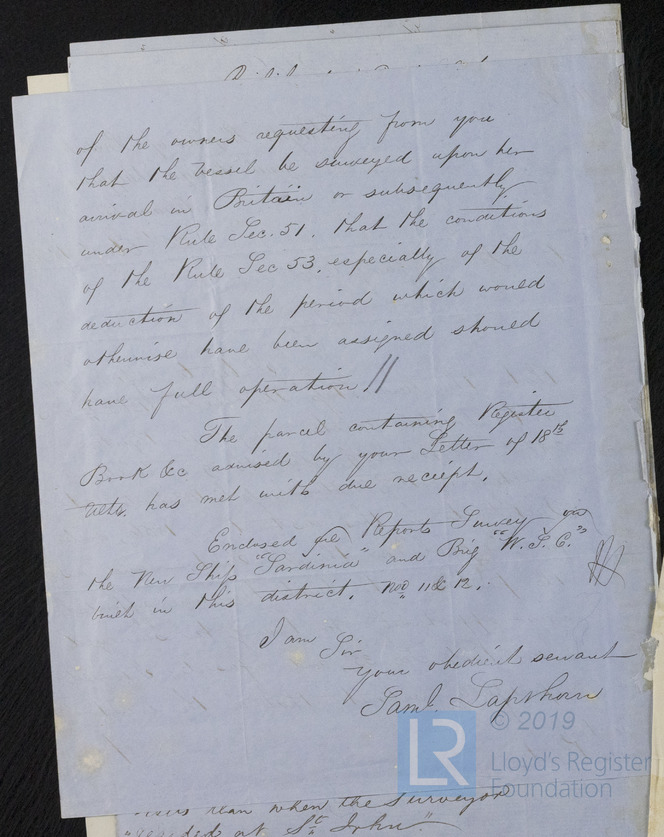 of the owners requesting from you
that the Vessel be surveyed upon her
arrival in Britain or subsequently
under Rule Sec. 51. that the conditions
of the Rule Sec 53, especially of the
deduction of the period which would
otherwise have been assigned should
have full operation //
The parcel containing Register
Book &c advised by your Letter of 18th
Ulto. has met with due receipt.
Enclosed are Reports Survey
the New Ship "Sardinia" and Brig "W.S.C."
built in this district. Nos 11 & 12.
I am Sir
your obedient servant
Saml. Lapthorn
© 2019
LR
Lloyd's Register
Foundation
when the Surveyor
resided at St. John."